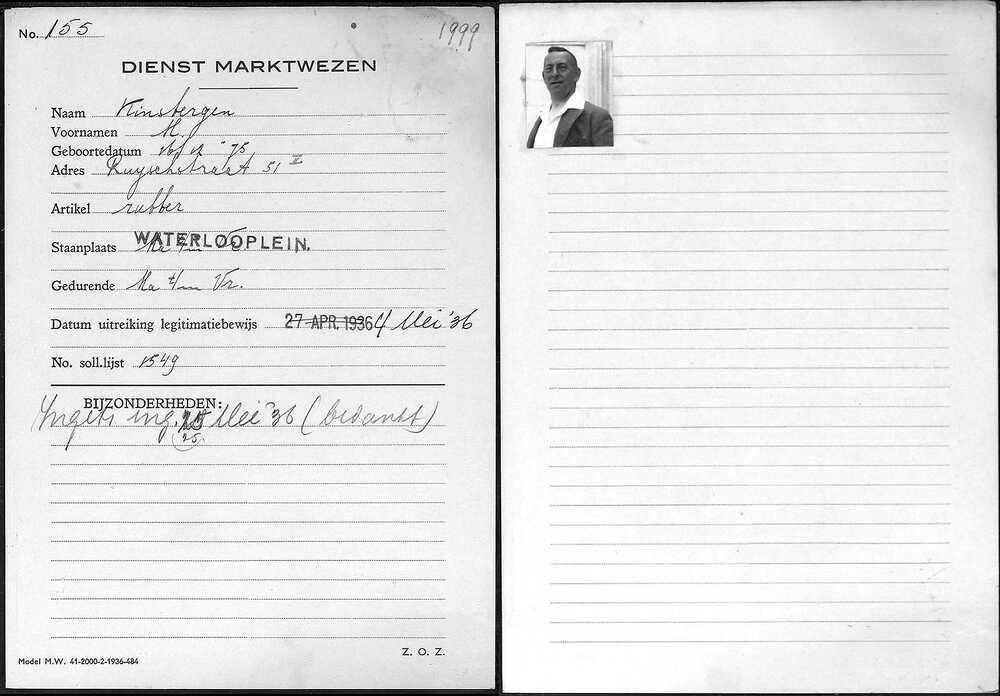 No. 155
1999
DIENST MARKTWEZEN
Naam Kinsbergen
Voornamen M.
Geboortedatum 16/12 '75
Adres Ruyschstraat 51 II
Artikel rubber
Staanplaats Ma t/m Vr. WATERLOOPLEIN.
Gedurende Ma t/m Vr.
Datum uitreiking legitimatiebewijs 27 APR. 1936 4 Mei '36
No. soll.lijst 1549
BIJZONDERHEDEN:
ing. 25 Mei '36 (bedankt)
25
Z. O. Z.
Model M.W. 41-2000-2-1936-484